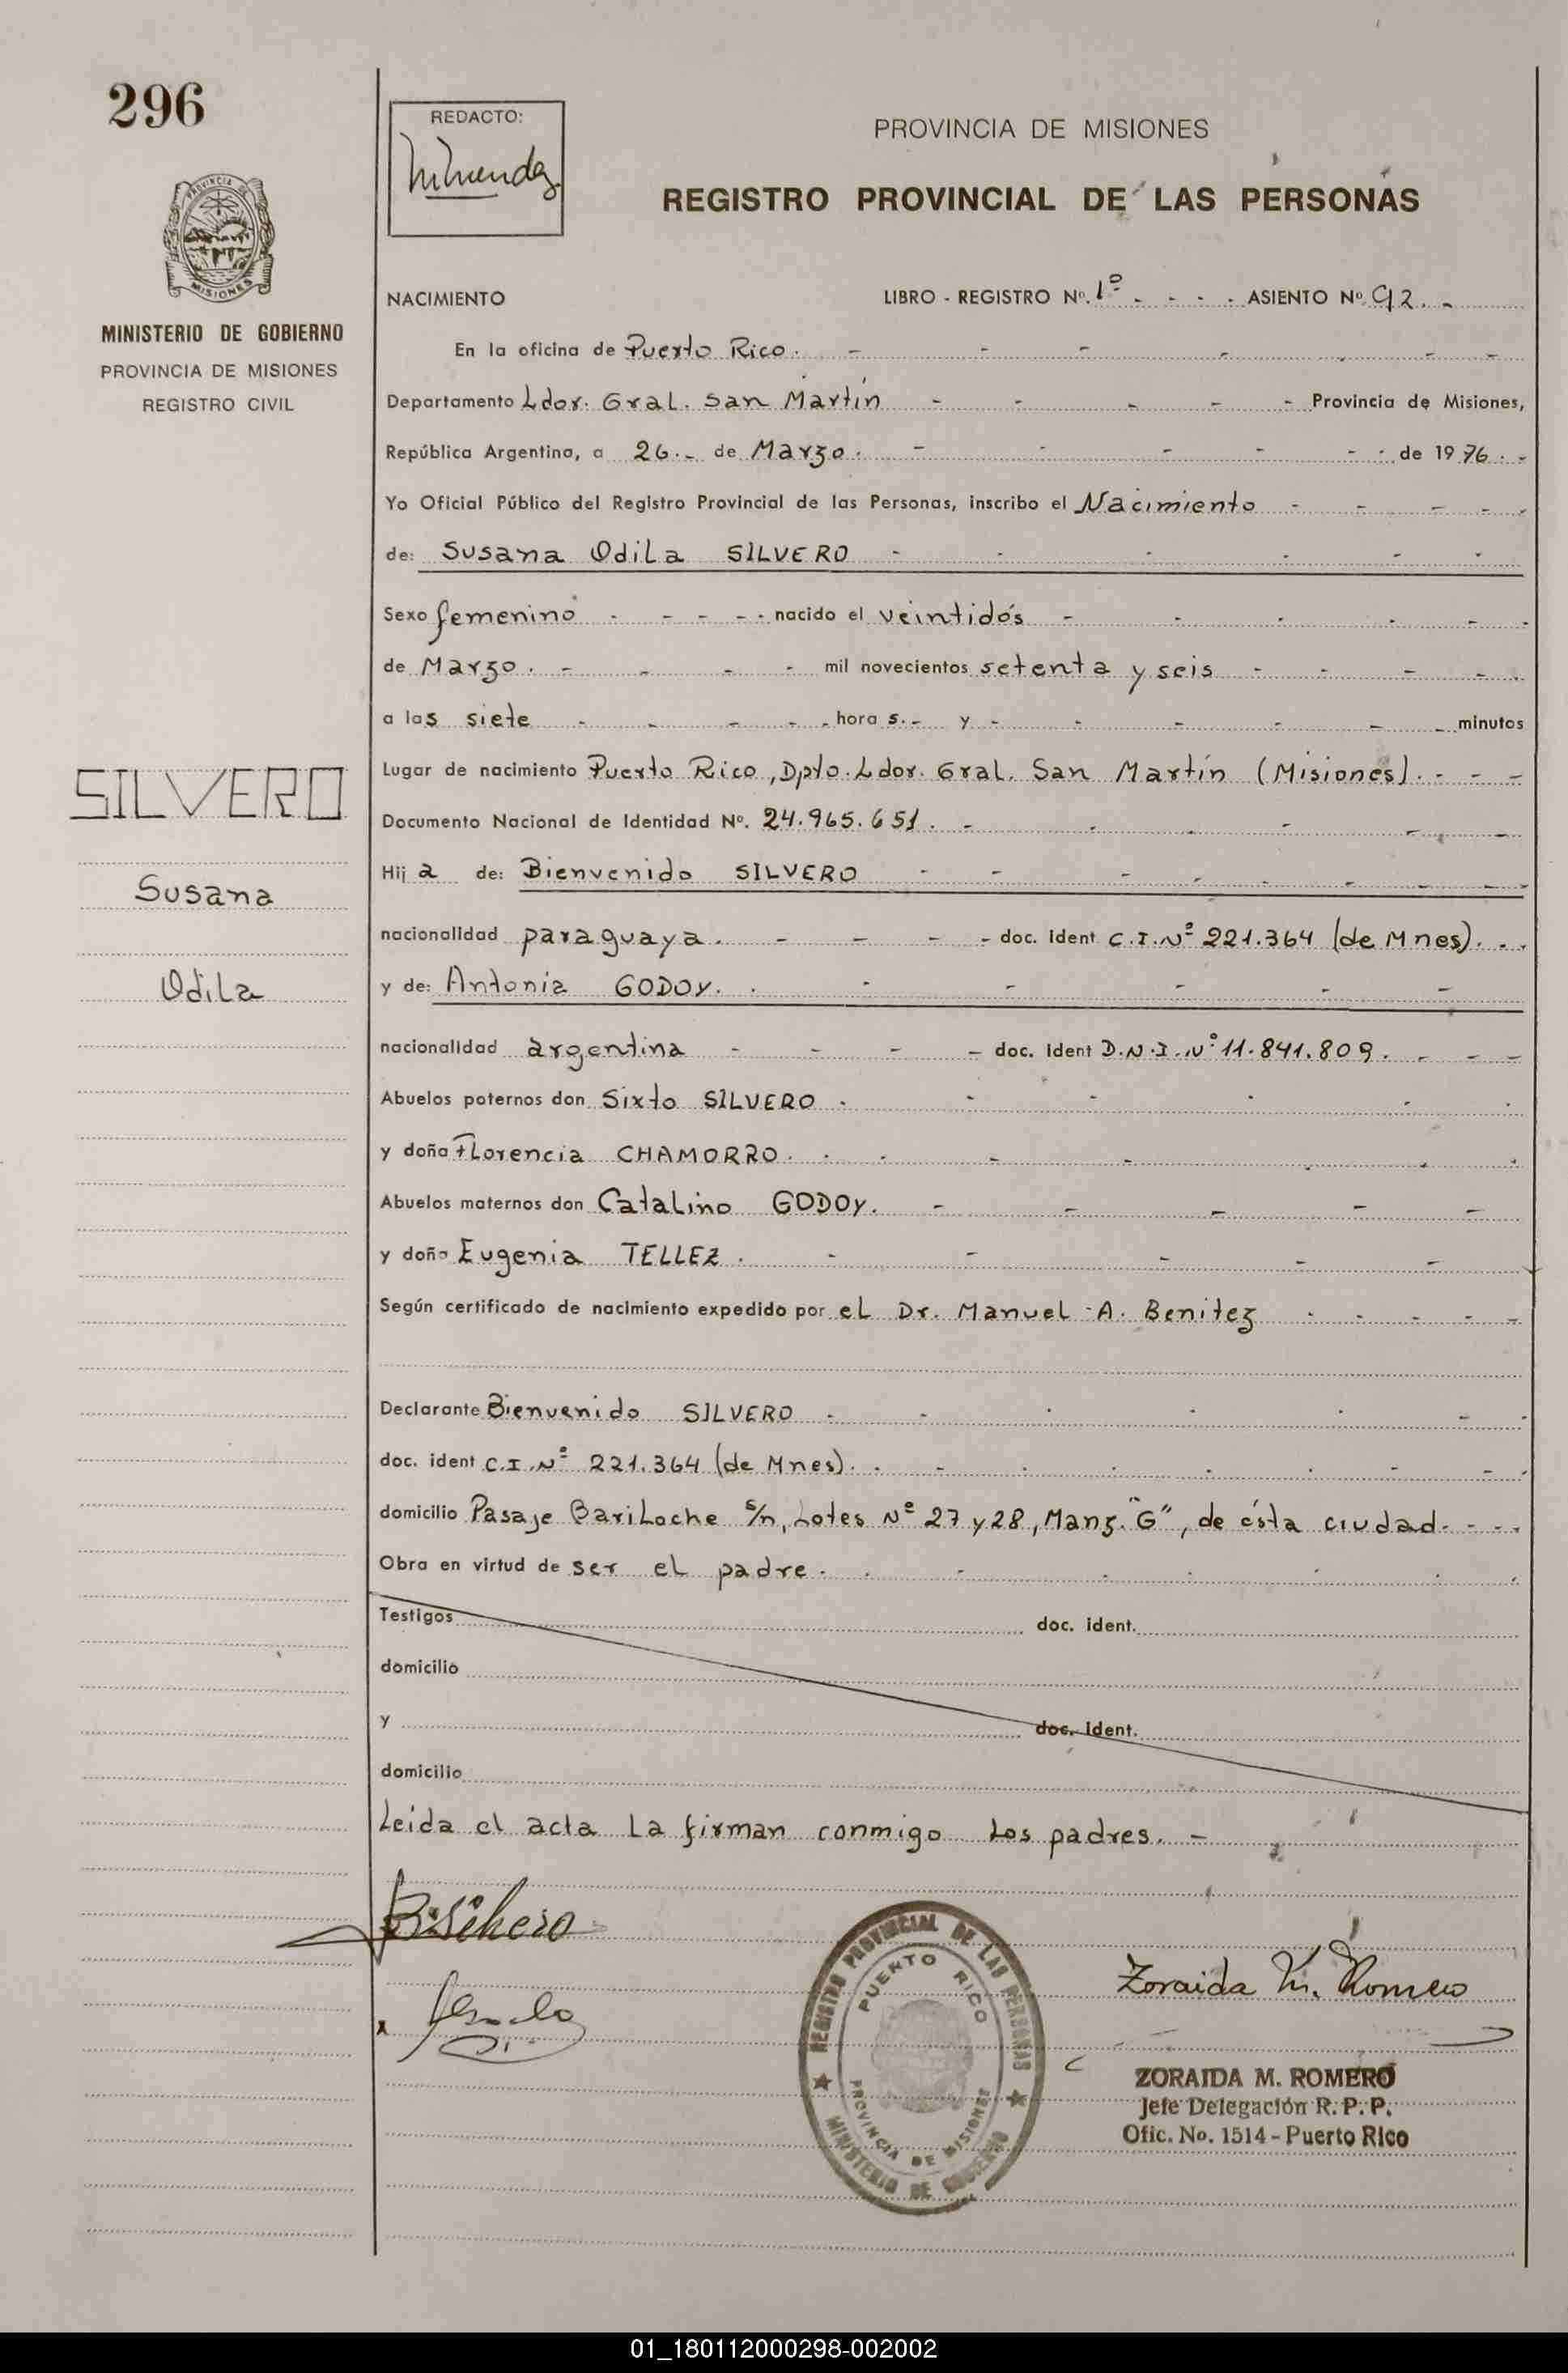 296
REDACTO:
PROVINCIA DE MISIONES
REGISTRO PROVINCIAL DE LAS PERSONAS
MISIONES
MINISTERIO DE GOBIERNO
PROVINCIA DE MISIONES
REGISTRO CIVIL
NACIMIENTO LIBRO - REGISTRO Nº. 1º - - - - ASIENTO Nº 92. -
En la oficina de Puerto Rico. - - - - - - -
Departamento Ldor. Gral. San Martín - - - - - Provincia de Misiones,
República Argentina, a 26.- de Marzo. - - - - - - de 1976. -
Yo Oficial Público del Registro Provincial de las Personas, inscribo el Nacimiento - - - - -
de: Susana Odila SILVERO - - - - - -
Sexo femenino - - - - - nacido el veintidós - - - - - -
de Marzo. - - - - mil novecientos setenta y seis - - - - -
a las siete - - - - - hora s.- y - - - - - - minutos
Lugar de nacimiento Puerto Rico, Dpto. Ldor. Gral. San Martín (Misiones). - - -
Documento Nacional de Identidad Nº. 24.965.651. - - - - - -
Hij a de: Bienvenido SILVERO - - - - - - - -
nacionalidad paraguaya. - - - - doc. ident C.I.Nº 221.364 (de Mnes). - -
y de: Antonia GODOY. - - - - - -
nacionalidad argentina - - - - doc. ident D.N.I. Nº 11.841.809. - - -
Abuelos paternos don Sixto SILVERO - - - - - -
y doña Florencia CHAMORRO. - - - - - - -
Abuelos maternos don Catalino GODOY. - - - - -
y doña Eugenia TELLEZ. - - - - -
Según certificado de nacimiento expedido por el Dr. Manuel A. Benitez - - - - -
Declarante Bienvenido SILVERO - - - - - - -
doc. ident C.I.Nº 221.364 (de Mnes). - - - - - - - -
domicilio Pasaje Bariloche s/n, Lotes Nº 27 y 28, Manz. "G", de ésta ciudad. - - -
Obra en virtud de ser el padre. - - - - - - -
Testigos doc. ident.
domicilio
y doc. ident.
domicilio
Leída el acta la firman conmigo los padres. -
SILVERO
Susana
Odila
B. Silvero
x
REGISTRO PROVINCIAL DE LAS PERSONAS
PUERTO RICO
PROVINCIA DE MISIONES
MINISTERIO DE GOBIERNO
Zoraida M. Romero
ZORAIDA M. ROMERO
Jefe Delegación R. P. P.
Ofic. No. 1514 - Puerto Rico
01_180112000298-002002